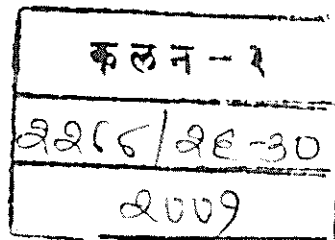 कलन - १
२२८८/२६-३०
२००१